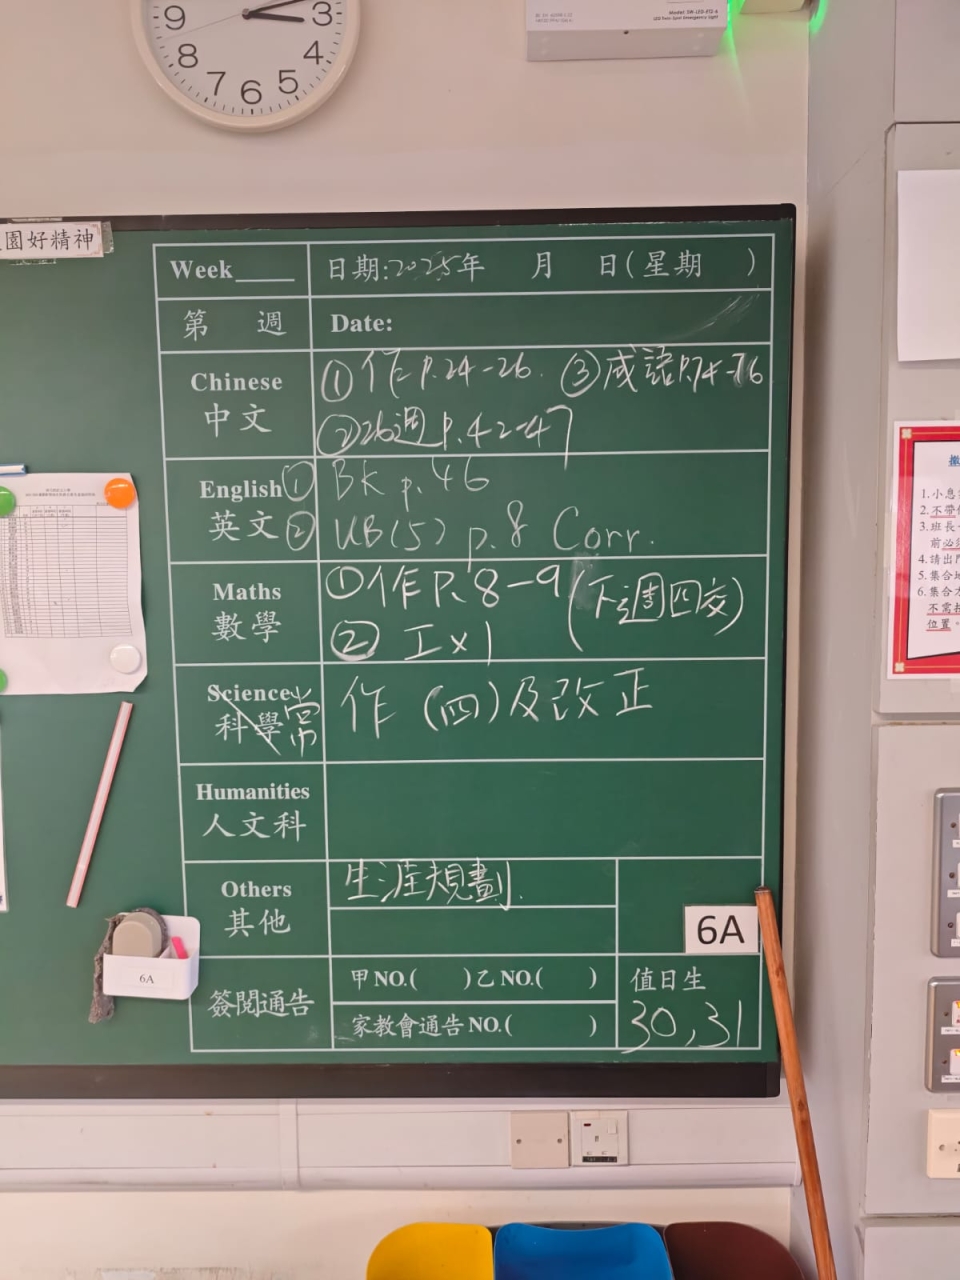 9 3
8 4
7 6 5
Model: SW-LED-R12-A
園好精神
Week____ 日期:2025年 月 日(星期 )
第 週 Date:
Chinese 中文
①作P.24-26. ③成語P.74-76
②26週P.42-47
English 英文
① BK p.46
② UB(5) p.8 Corr.
Maths 數學
①作P.8-9 (下週四交)
② 工x1
Science 科學 常
作(四)及改正
Humanities
人文科
Others 生涯規劃.
其他
6A
簽閱通告 甲NO.( )乙NO.( ) 值日生
家教會通告NO.( ) 30,31
6A
1.小息
2.不帶
3.班長
前必
4.請出
5.集合
6.集合
不需
位置。